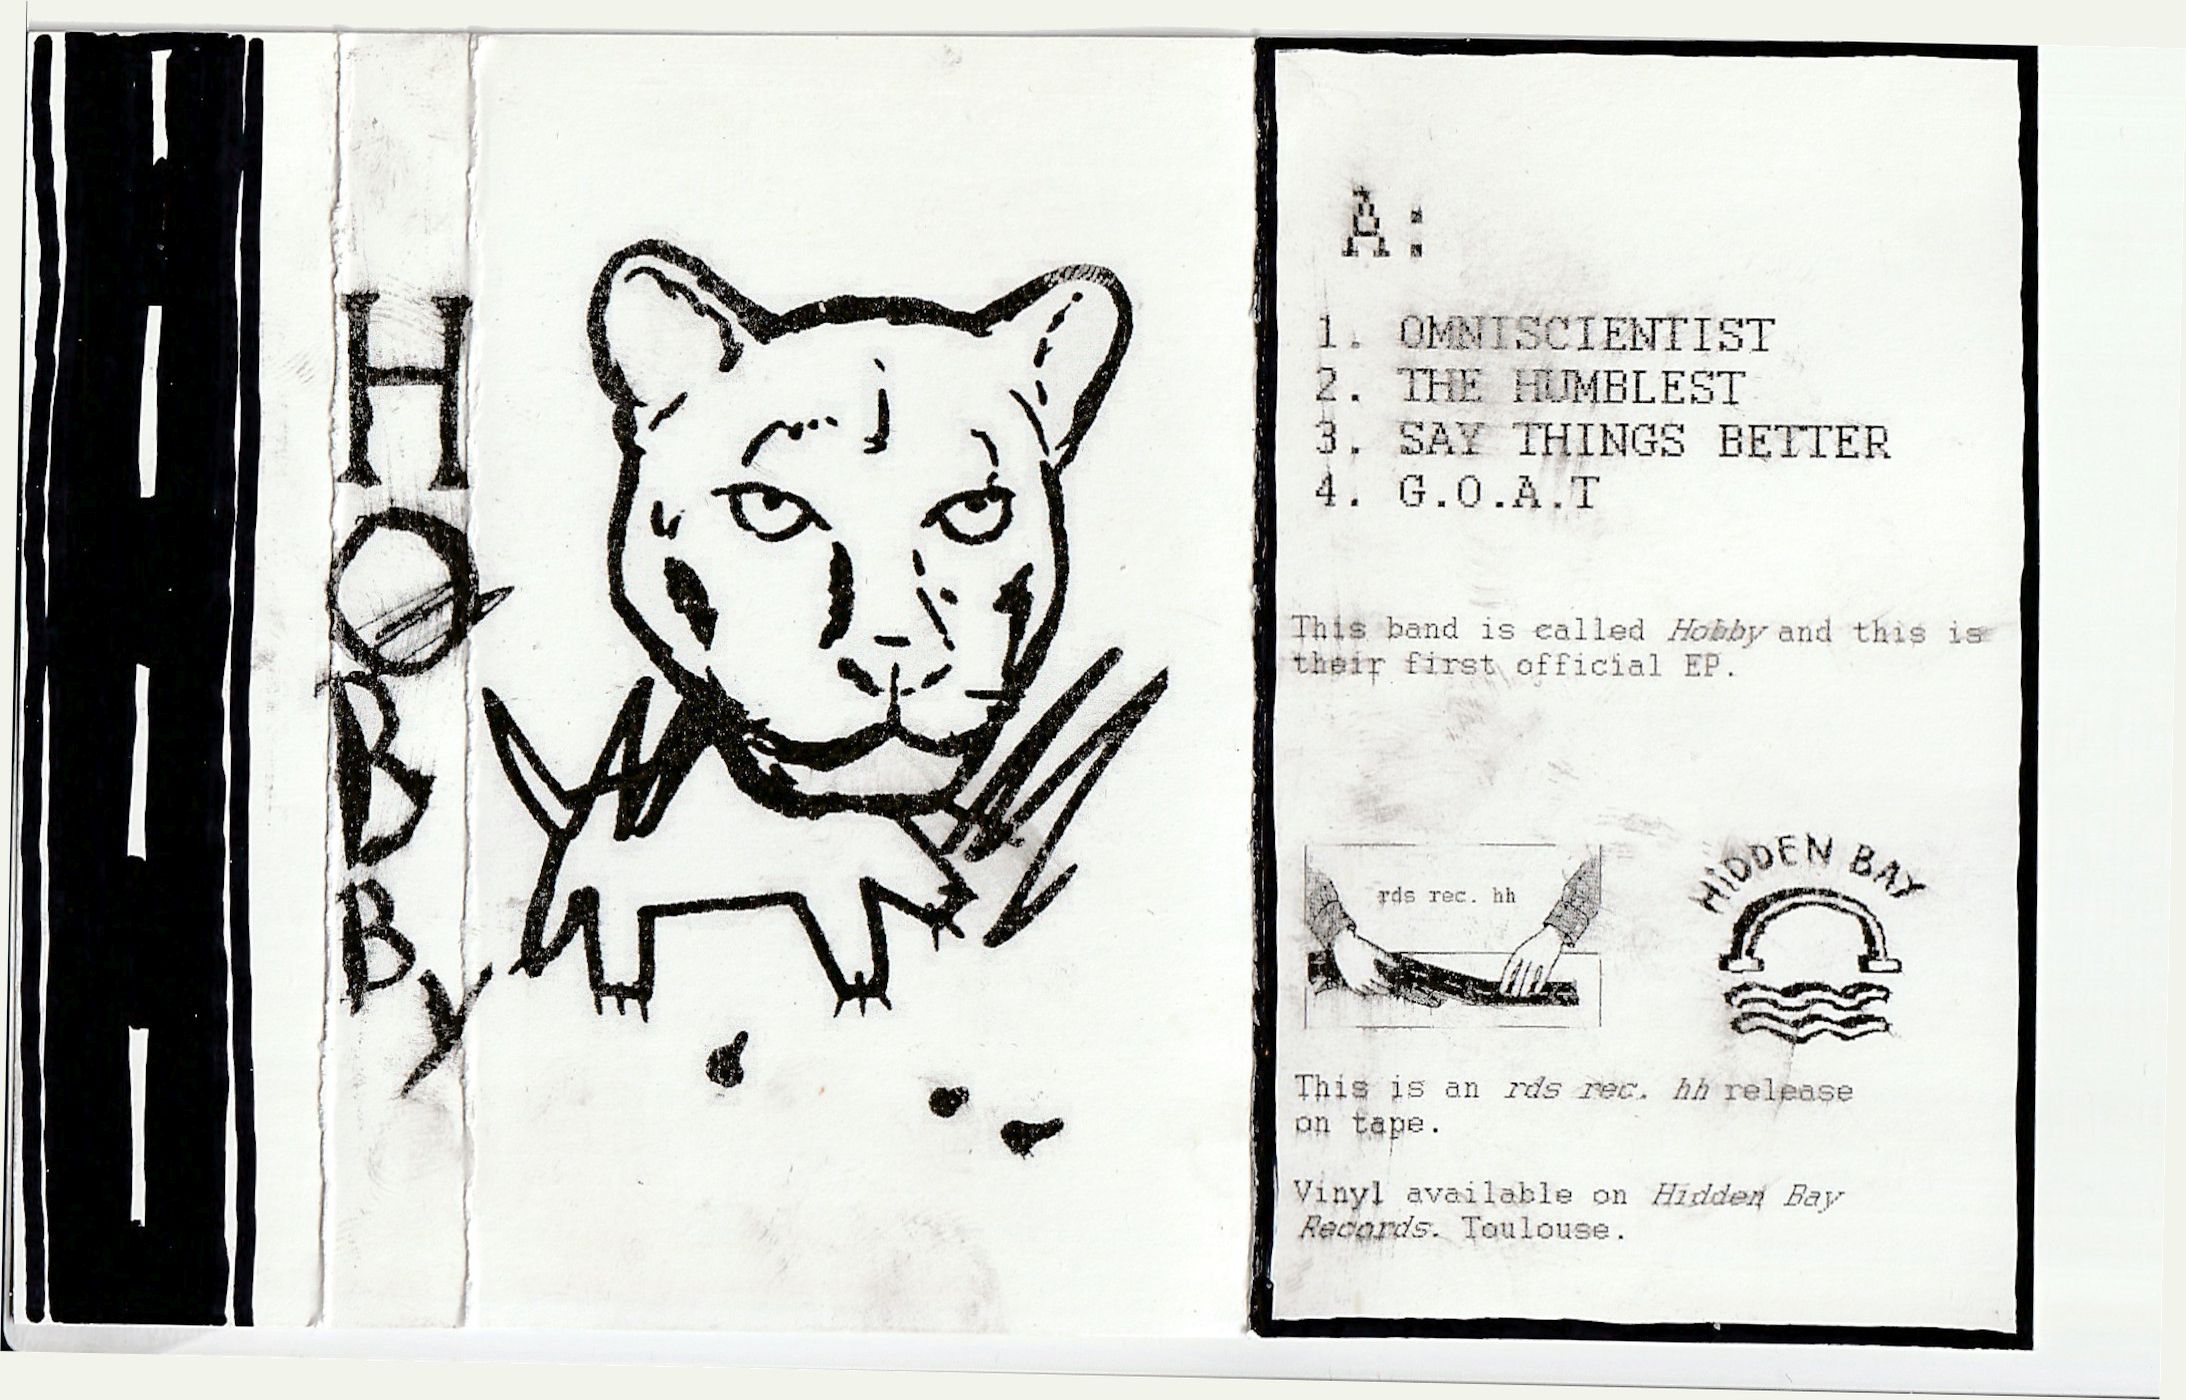 HOBBY
A:
1. OMNISCIENTIST
2. THE HUMBLEST
3. SAY THINGS BETTER
4. G.O.A.T
This band is called Hobby and this is
their first official EP.
rds rec. hh
HiDDEN BAY
This is an rds rec. hh release
on tape.
Vinyl available on Hidden Bay
Records. Toulouse.